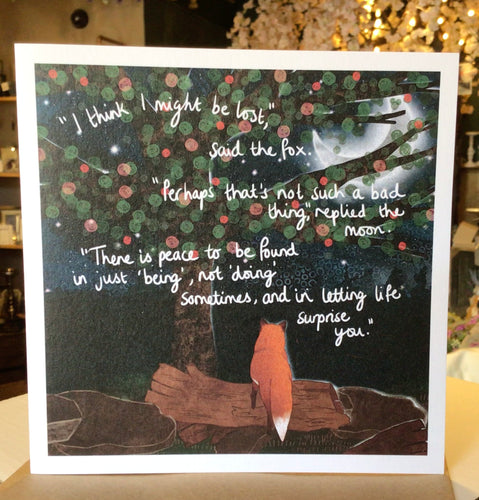 "I think I might be lost,"
said the fox.
"Perhaps that's not such a bad
thing," replied the
moon.
"There is peace to be found
in just 'being', not 'doing'
sometimes, and in letting life
surprise
you."